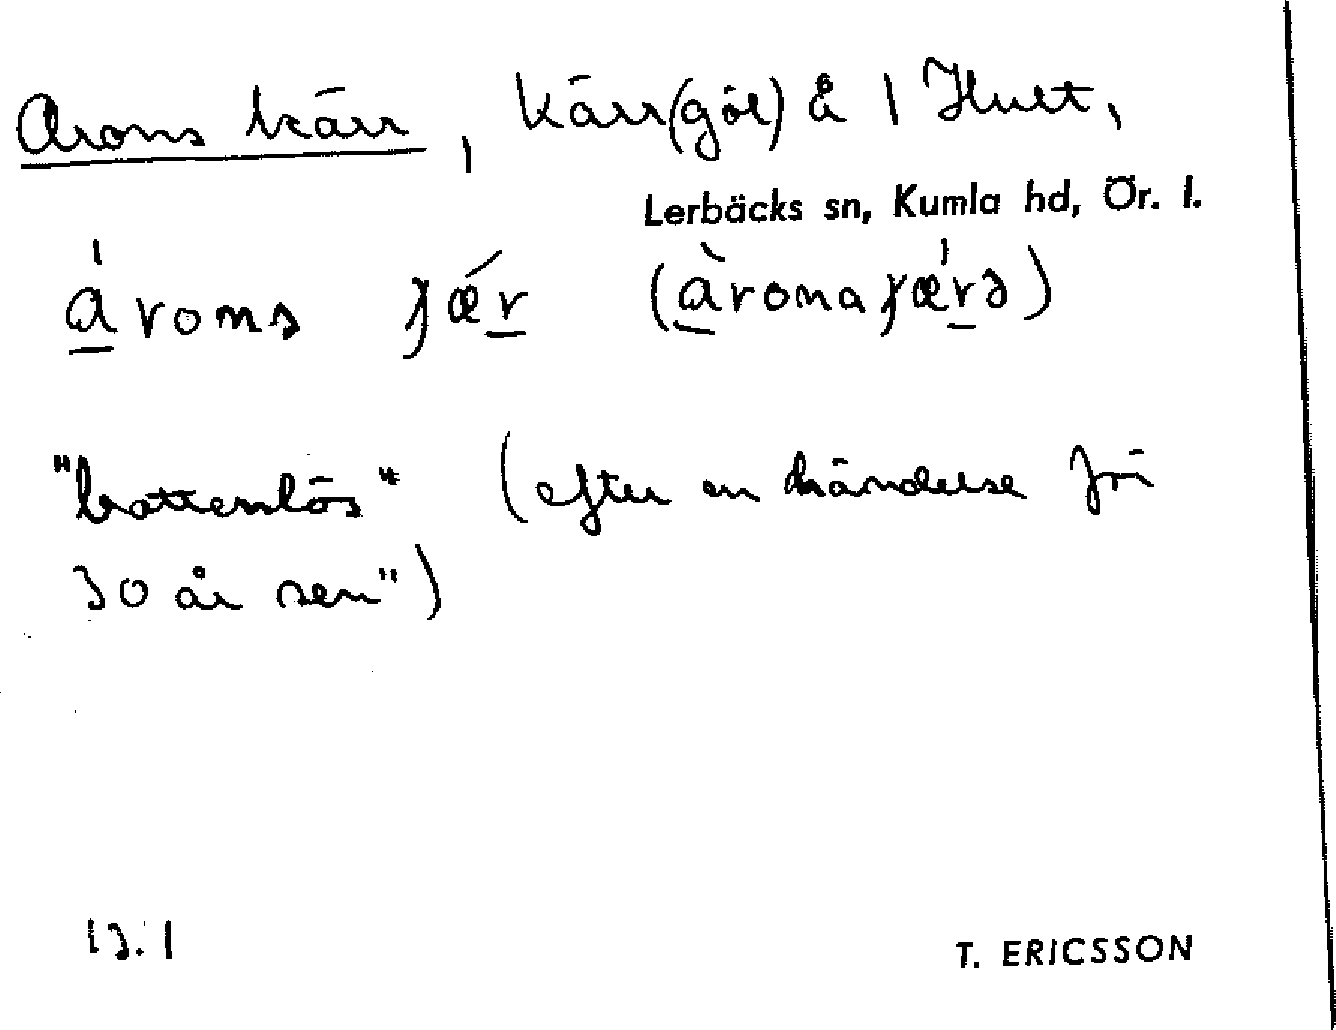 Arons kärr, kärr(göl) å 1 Hult,
Lerbäcks sn, Kumla hd, Ör. l.
árons ɟǽr (àronaɟǽrə)
"bottenlös" (efter en händelse för
30 år sen")
13.1
T. ERICSSON